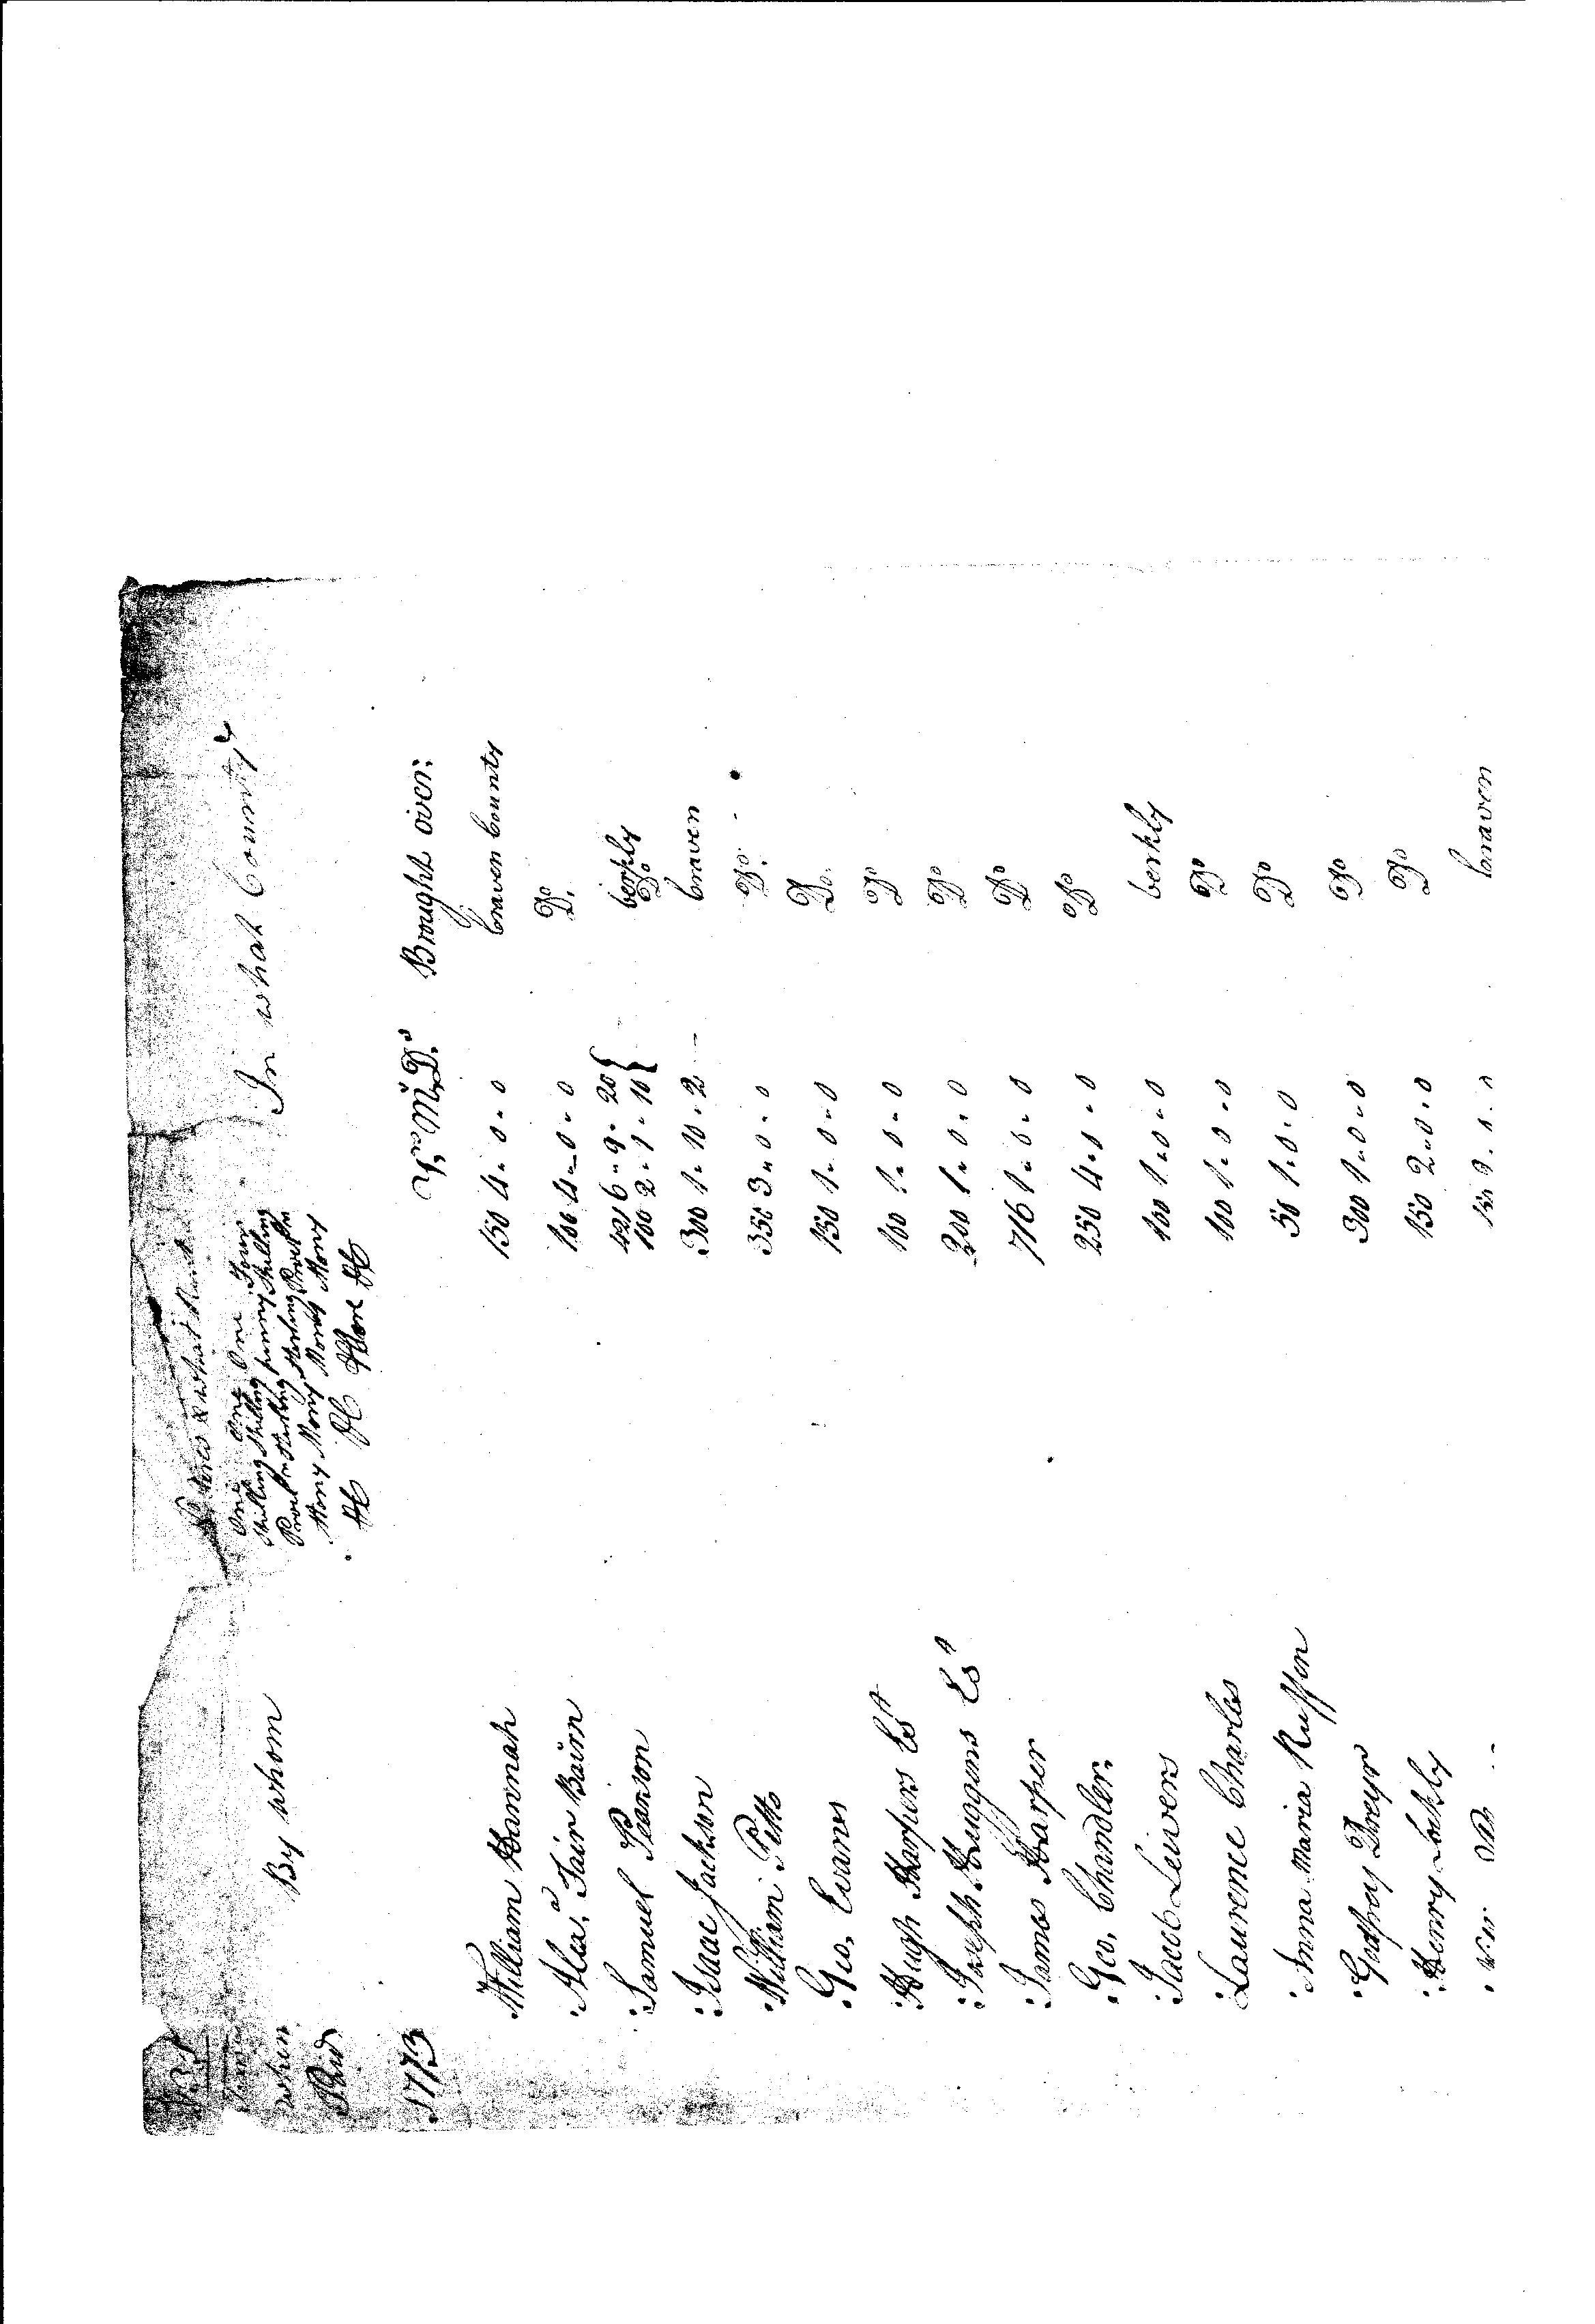 when By whom In what County
Paid
& what
One One One Four
Shilling Shilling penny Shilling
Procln Sterling Sterling Procln
Mony Mony Mony Mony
1773 Yrs Ms Ds Brought over:
William Hannah 150 4 " 0 " 0 Craven County
Alexa Fair Bairn 100 4 " 0 " 0 Do
Samuel Pearson 421 6 " 9 " 20 berkly
100 2 " 1 " 10 Do
Isaac Jackson 300 1 " 10 " 2 Craven
William Pitts 350 3 " 0 " 0 Do
Geo, Evans 150 1 " 0 " 0 Do
Hugh Harpers Est 100 1 " 0 " 0 Do
Joseph Huggens Est 200 1 " 0 " 0 Do
James Harper 716 1 " 0 " 0 Do
Geo, Chandler 250 4 " 0 " 0 Do
Jacob Leivers 100 1 " 0 " 0 berkly
Laurence Charles 100 1 " 0 " 0 Do
Anna Maria Ruffon 50 1 " 0 " 0 Do
Godfrey Dreyr 300 1 " 0 " 0 Do
Henry Lockly 150 2 " 0 " 0 Do
Craven